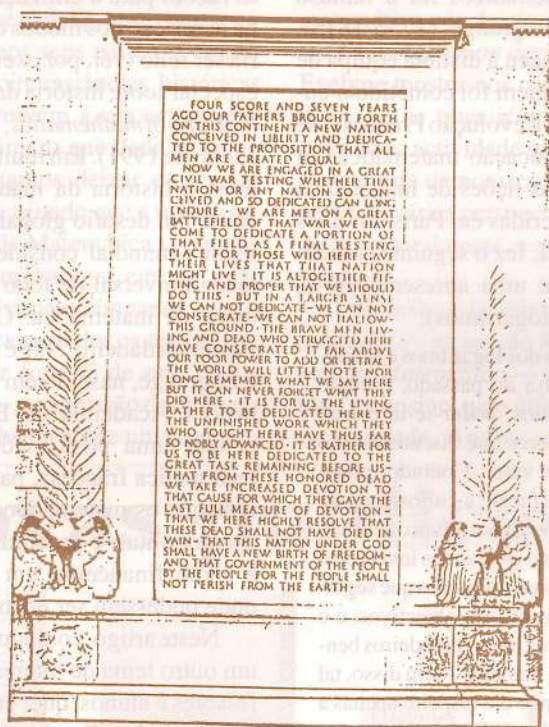 FOUR SCORE AND SEVEN YEARS
AGO OUR FATHERS BROUGHT FORTH
ON THIS CONTINENT A NEW NATION
CONCEIVED IN LIBERTY AND DEDICA-
TED TO THE PROPOSITION THAT ALL
MEN ARE CREATED EQUAL ·
NOW WE ARE ENGAGED IN A GREAT
CIVIL WAR TESTING WHETHER THAT
NATION OR ANY NATION SO CON-
CEIVED AND SO DEDICATED CAN LONG
ENDURE · WE ARE MET ON A GREAT
BATTLEFIELD OF THAT WAR · WE HAVE
COME TO DEDICATE A PORTION OF
THAT FIELD AS A FINAL RESTING
PLACE FOR THOSE WHO HERE GAVE
THEIR LIVES THAT THAT NATION
MIGHT LIVE · IT IS ALTOGETHER FIT-
TING AND PROPER THAT WE SHOULD
DO THIS · BUT IN A LARGER SENSE
WE CAN NOT DEDICATE-WE CAN NOT
CONSECRATE-WE CAN NOT HALLOW-
THIS GROUND · THE BRAVE MEN LIV-
ING AND DEAD WHO STRUGGLED HERE
HAVE CONSECRATED IT FAR ABOVE
OUR POOR POWER TO ADD OR DETRACT
THE WORLD WILL LITTLE NOTE NOR
LONG REMEMBER WHAT WE SAY HERE
BUT IT CAN NEVER FORGET WHAT THEY
DID HERE · IT IS FOR US THE LIVING
RATHER TO BE DEDICATED HERE TO
THE UNFINISHED WORK WHICH THEY
WHO FOUGHT HERE HAVE THUS FAR
SO NOBLY ADVANCED · IT IS RATHER FOR
US TO BE HERE DEDICATED TO THE
GREAT TASK REMAINING BEFORE US-
THAT FROM THESE HONORED DEAD
WE TAKE INCREASED DEVOTION TO
THAT CAUSE FOR WHICH THEY GAVE THE
LAST FULL MEASURE OF DEVOTION-
THAT WE HERE HIGHLY RESOLVE THAT
THESE DEAD SHALL NOT HAVE DIED IN
VAIN-THAT THIS NATION UNDER GOD
SHALL HAVE A NEW BIRTH OF FREEDOM-
AND THAT GOVERNMENT OF THE PEOPLE
BY THE PEOPLE FOR THE PEOPLE SHALL
NOT PERISH FROM THE EARTH ·